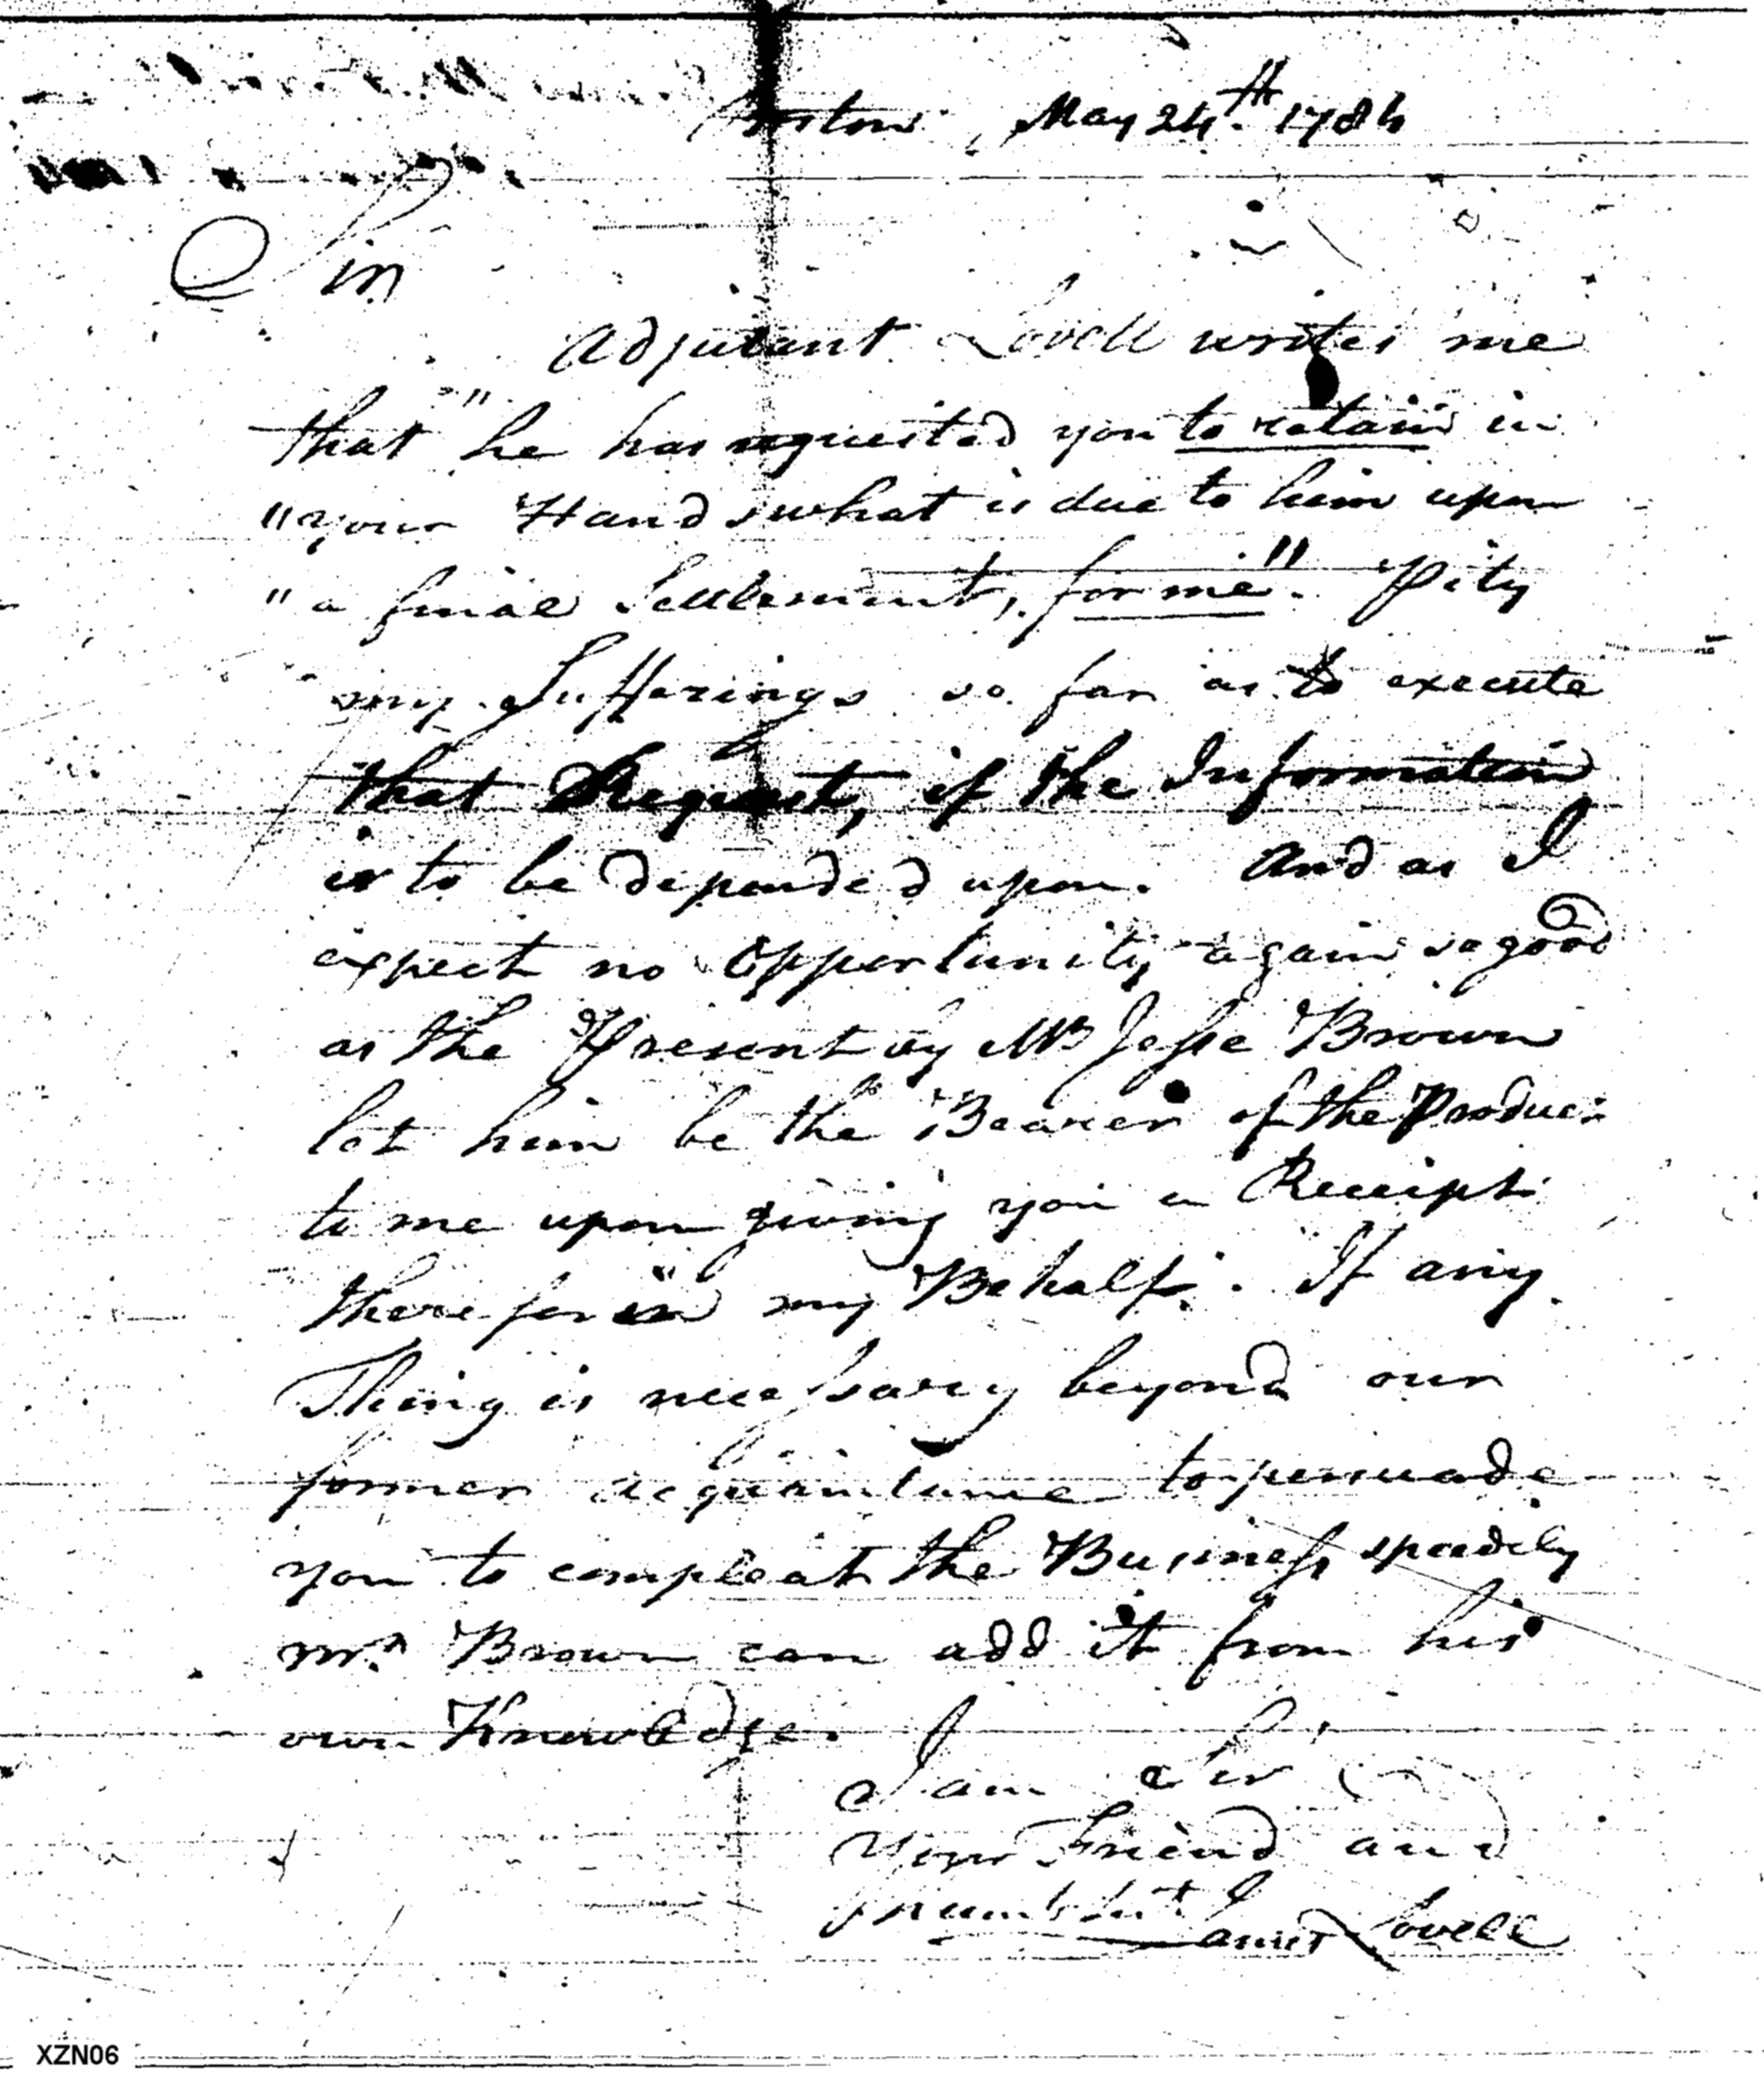 Boston, May 24th. 1784
Sir
Adjutant Lovell writes me
that "he has requested you to retain in
"your Hands what is due to him upon
"a final Settlement, for me". Pity
my Sufferings so far as to execute
that Request, if the Information
is to be depended upon. And as I
expect no Opportunity again so good
as the Present by Mr Jesse Brown
let him be the Bearer of the Produce
to me upon giving you a Receipt
therefor in my Behalf. If any
Thing is necessary beyond our
former acquaintance to persuade
you to compleat the Business speedily
Mr. Brown can add it from his
own Knowledge.
I am Sir
Your Friend and
humb Svt.
James Lovell
XZN06